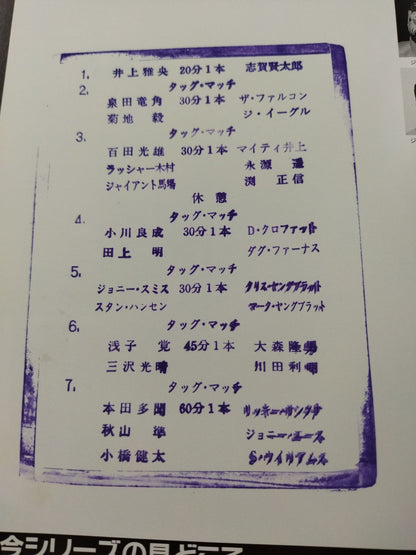 1. 井上雅央 20分1本 志賀賢太郎
2. タッグ・マッチ
泉田竜角 30分1本 ザ・ファルコン
菊地 毅 ジ・イーグル
3. タッグ・マッチ
百田光雄 30分1本 マイティ井上
ラッシャー木村 永源 遥
ジャイアント馬場 渕 正信
休憩
4. タッグ・マッチ
小川良成 30分1本 D・クロファット
田上 明 ダグ・ファーナス
5. タッグ・マッチ
ジョニー・スミス 30分1本 クリス・ヤングブラット
スタン・ハンセン マーク・ヤングブラット
6. タッグ・マッチ
浅子 覚 45分1本 大森隆男
三沢光晴 川田利明
7. タッグ・マッチ
本田多聞 60分1本
秋山 準 ジョニー・エース
小橋健太 S・ウイリアムス
今シリーズの見どころ